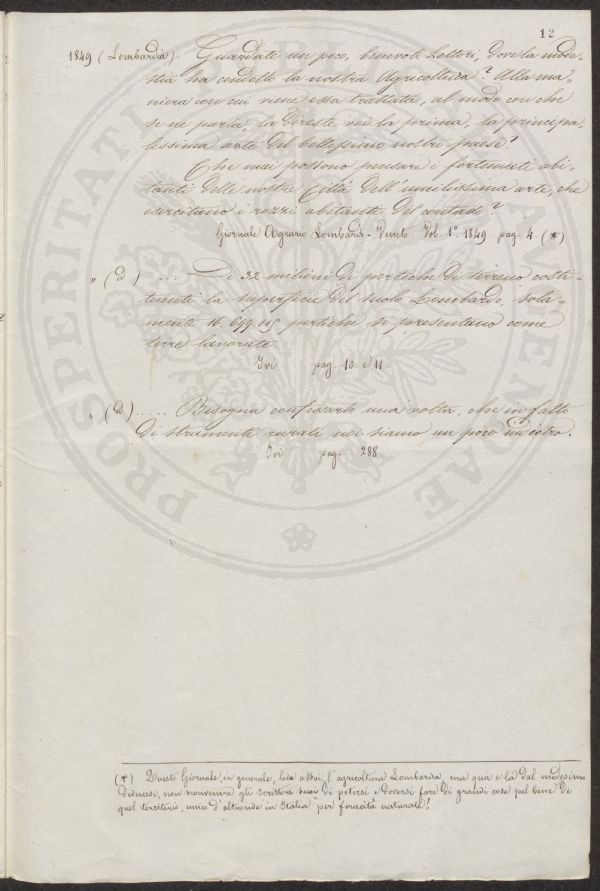 12
1849 (Lombardia) Guardate un poco, benevoli Lettori, dove la mode=
stia ha condotto la nostra Agricoltura? Alla ma=
niera con cui viene essa trattata, al modo con che
se ne parla, la direste voi la prima, la principa=
lissima arte del bellissimo nostro paese?
Che mai possono pensare i fortunati abi=
tanti delle nostre Città dell'umilissima arte, che
esercitano i rozzi abitanti del contado?
Giornale Agrario Lombardo-Veneto Vol. 1° 1849 pag. 4. (*)
" (id) .... Di 32 milioni di pertiche di terreno costi=
tuenti la superficie del suolo Lombardo, sola=
mente 16.699.115 pertiche si presentano come
terre lavorate.
Ivi pag. 10 e 11.
" (id) ..... Bisogna confessarlo una volta, che in fatto
di strumenti rurali noi siamo un poco indietro.
Ivi pag. 288.
(*) Questo Giornale, in generale, loda assai l'agricoltura Lombarda, ma qua e là dal medesimo
deducesi, non sconvenire gli scrittori suoi di potersi e doversi fare di grandi cose pel bene di
quel territorio, unico d'altronde in Italia per feracità naturale!
PROSPERITATI PUBLICAE AUGENDAE